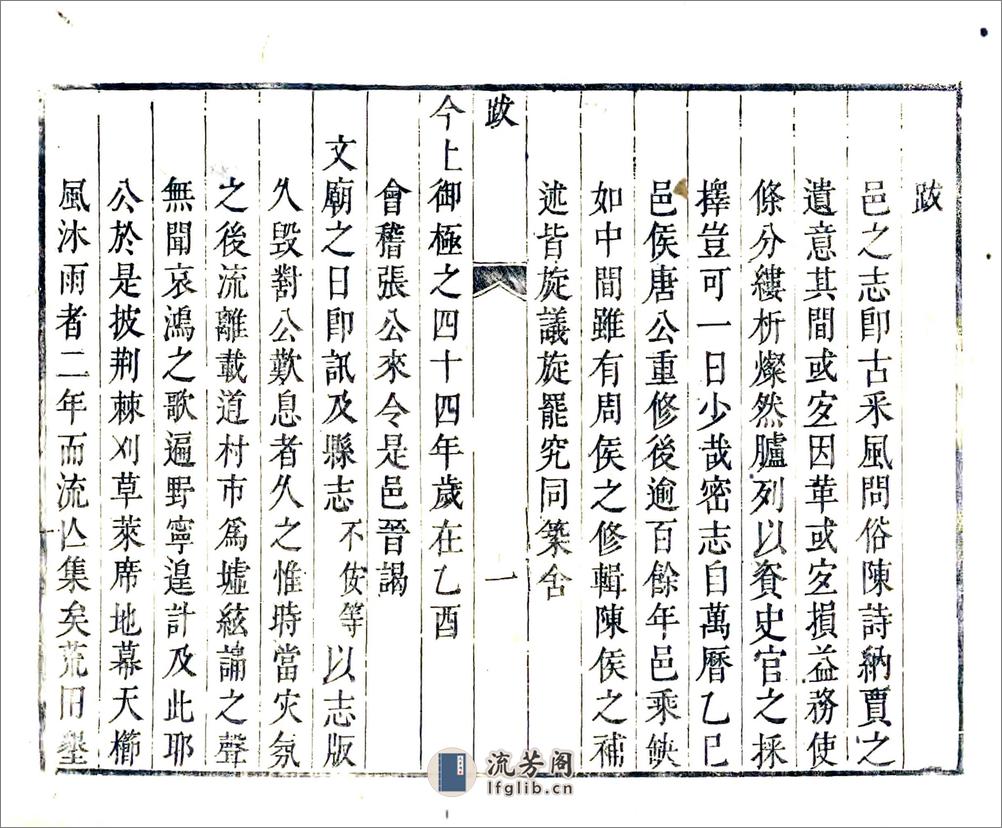 跋
邑之志卽古釆風問俗陳詩納賈之
遺意其間或宜因革或宜損益務使
條分縷析燦然臚列以資史官之採
擇豈可一日少哉密志自萬曆乙巳
邑侯唐公重修後逾百餘年邑乘缺
如中間雖有周侯之修輯陳侯之補
述皆旋議旋罷究同築舍
跋
一
今上御極之四十四年歲在乙酉
會稽張公來令是邑晉謁
文廟之日卽訊及縣志不佞等以志版
久毀對公歎息者久之惟時當灾氛
之後流離載道村市爲墟絃誦之聲
無聞哀鴻之歌遍野寧遑計及此耶
公於是披荆棘刈草萊席地幕天櫛
風沐雨者二年而流亾集矣荒田墾
流芳阁
lfglib.cn